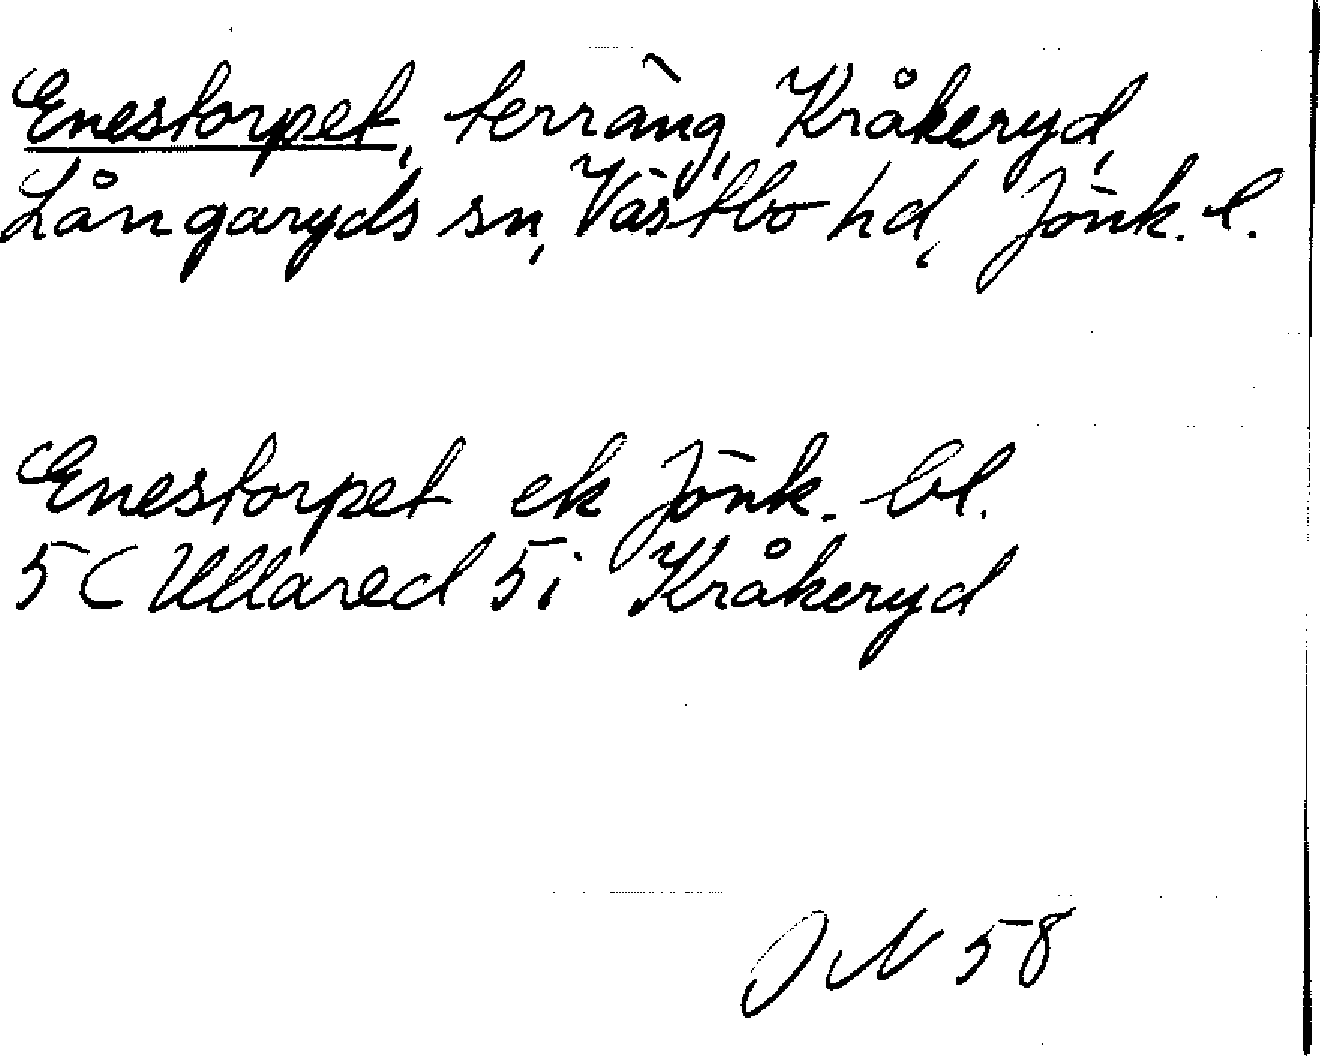 Enestorpet, terräng, Kråkeryd,
Långaryds sn, Västbo hd, Jönk. l.
Enestorpet ek Jönk. bl.
5C Ullared 5i Kråkeryd
JN 58